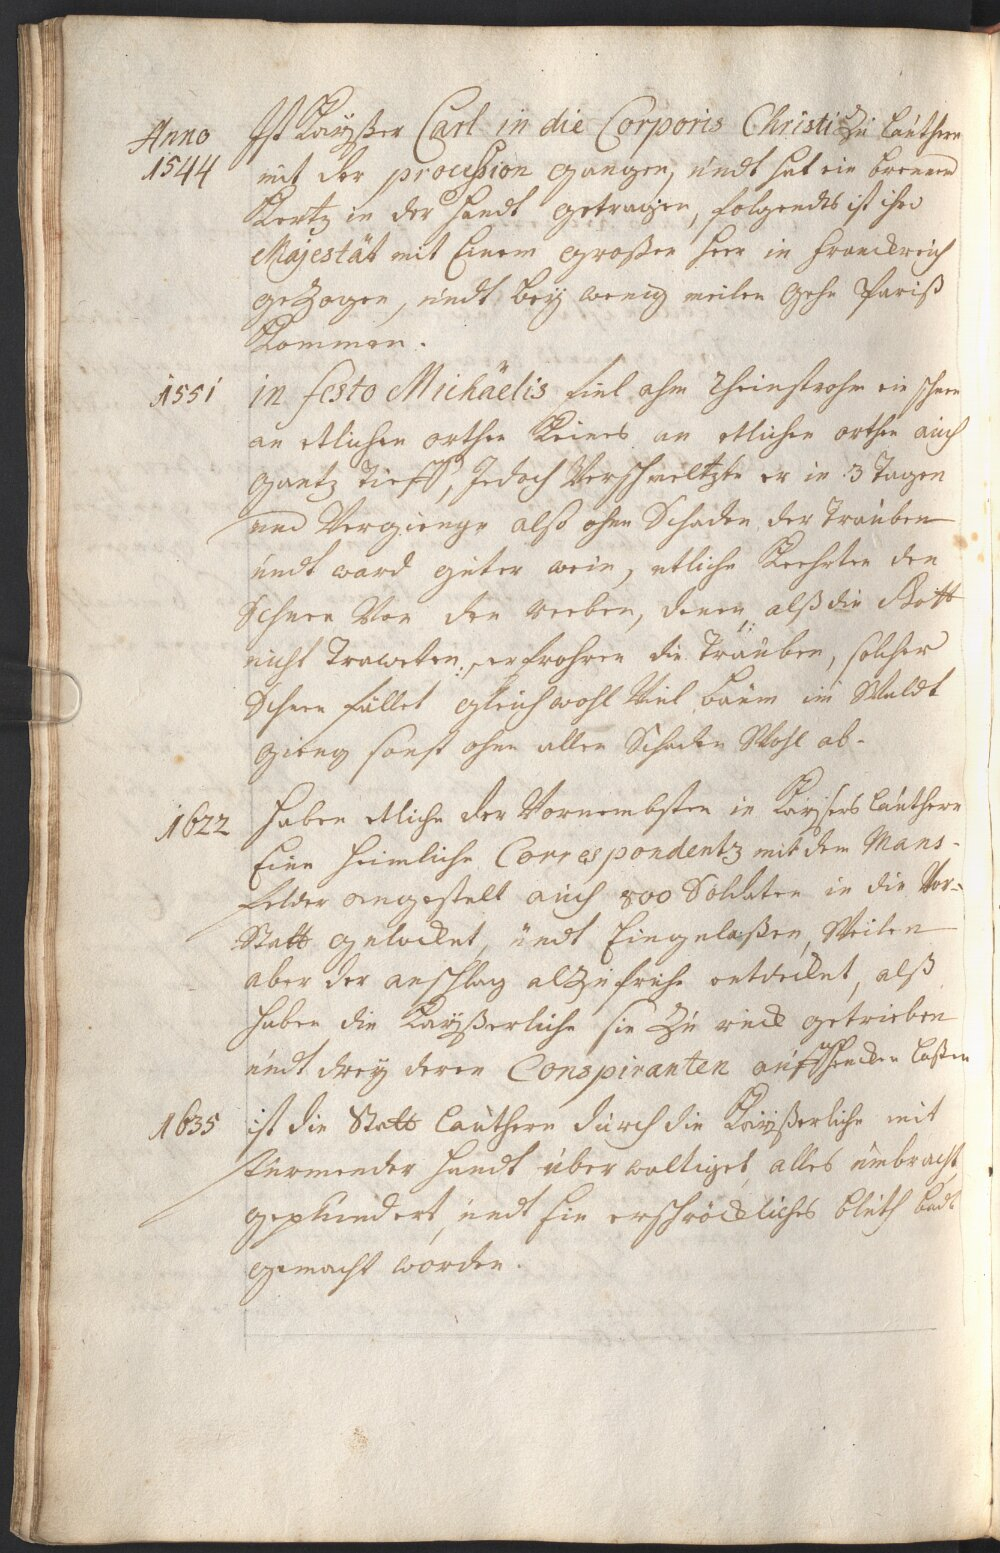 Anno 1544 Ist Kaÿßer Carl in die Corporis Christi Zu Lauthern
mit der procession gangen, undt hat ein brenend
Kertz in der handt getragen, folgendts ist ihro
Majestät mit Einem großen heer in Franckreich
geZogen, undt beÿ wenig meilen gehn Pariß
Kommen.
1551 in festo Michäelis fiel ahm Rheinstrohm ein schnee
an etlichen orthen Kleines an etlichen orthen auch
gantz Tieff, Jedoch Verschmeltzte er in 3 Tagen
und Vergienge alß ohne Schaden der Trauben
undt ward guter wein, etliche Keehrten den
Schnee Von den reeben, denen, alß die Gott
nicht Traweten, erfrohren die Trauben, solcher
Schnee fället gleichwohl Viel bäum im Waldt
gieng sonst ohne allen Schaden Wohl ab.
1622 haben etliche der Vornembsten in Kaÿsers Lauthern
Eine heimliche Correspondentz mit dem Mans-
felder angestelt auch 800 Soldaten in die Vor-
Statt gelocket, undt Eingelaßen, Weilen
aber der anschlag alZufrühe entdecket, alß
haben die Kaÿßerliche sie Zu rück getrieben
undt dreÿ deren Conspiranten auffhencken laßen
1635 ist die Statt Lauthern durch die Kaÿßerliche mit
stürmender handt überwältiget, alles umbracht,
geplündert, undt Ein erschröckliches bluth badt
gemacht worden.